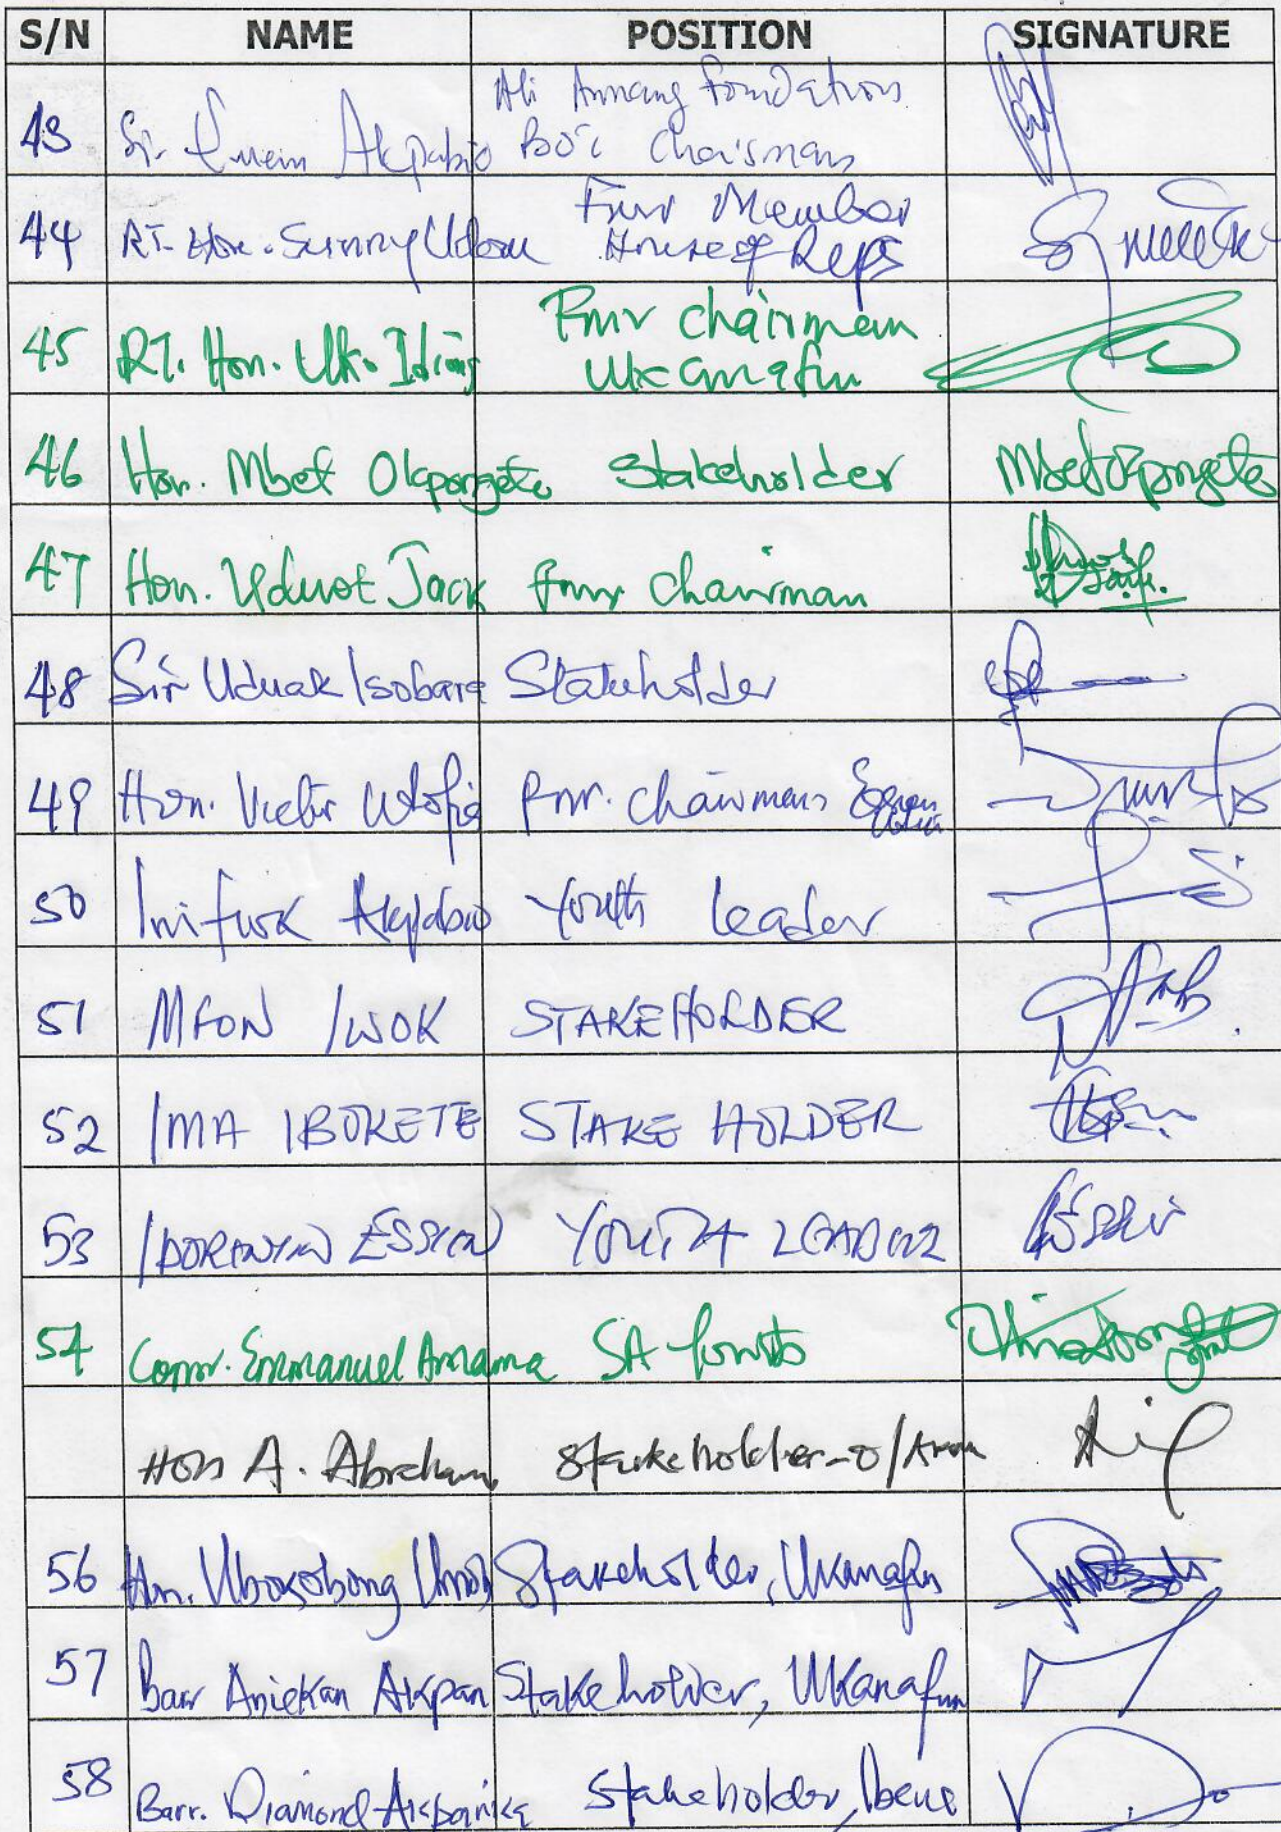 S/N NAME POSITION SIGNATURE
Ati Annang Foundation
43 Sir Akpabio BOT Chairman
Fmr Member
44 RT. Hon. Sunny Udom House of Reps
Fmr Chairman
45 RT. Hon. Uko Idiong Ukanafun
46 Hon. Mbet Okpongete Stakeholder Mbet Okpongete
47 Hon. Uduot Jack fmr Chairman
48 Sir Uduak Isobara Stakeholder
49 Hon. Victor Utofia Fmr. Chairman
50 Inifiok Akpabio Youth leader
51 MFON IWOK STAKEHOLDER
52 IMA IBOKETE STAKE HOLDER
53 IDORENYIN ESSIEN YOUTH LEADER
54 Comr. Emmanuel Amama SA
Hon A. Abraham Stakeholder - O/Anam
56 Hon. Ubokobong Umoh Stakeholder, Ukanafun
57 Barr Aniekan Akpan Stakeholder, Ukanafun
58 Barr. Diamond Akpanika Stakeholder, Ibeno